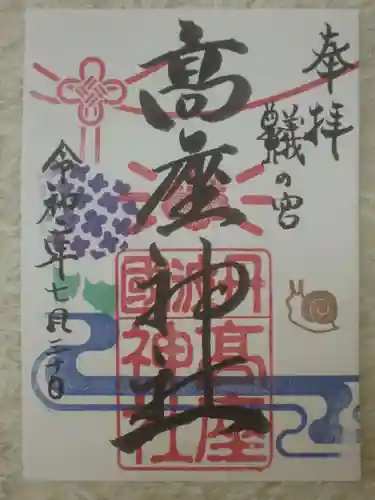 奉拝
蟻の宮
高座神社
丹波國
高座
神社
令和二年七月二十日